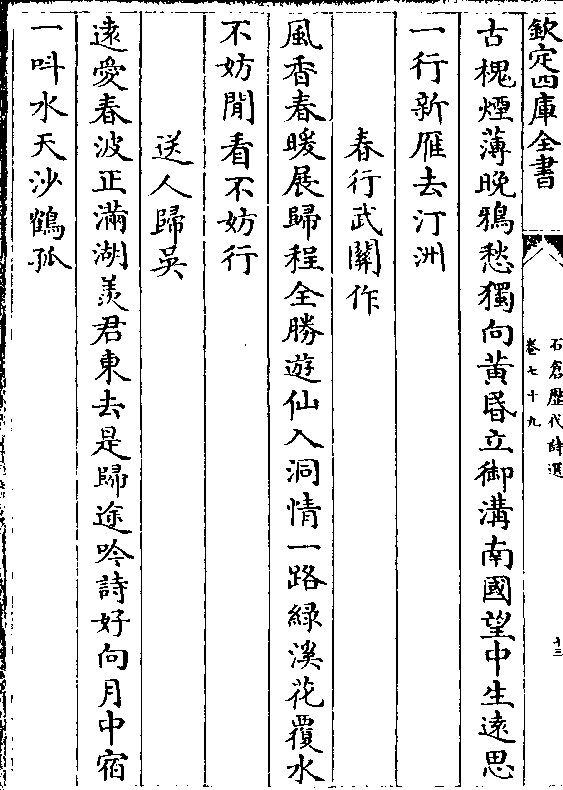 欽定四庫全書
石倉歷代詩選
卷七十九
十三
古槐煙薄晚鴉愁獨向黃昏立御溝南國望中生遠思
一行新雁去汀洲
春行武關作
風香春暖展歸程全勝遊仙入洞情一路緑溪花覆水
不妨閒看不妨行
送人歸吳
遠愛春波正滿湖羨君東去是歸途吟詩好向月中宿
一呌水天沙鶴孤